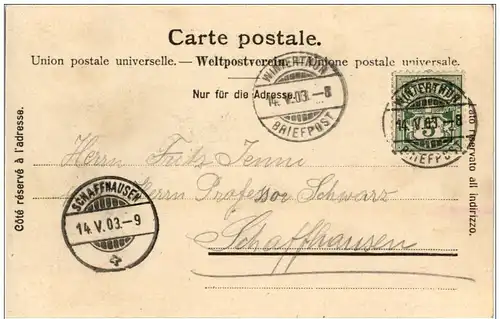 Carte postale.
Union postale universelle. — Weltpostverein. — Unione postale universale.
Nur für die Adresse.
WINTERTHUR
14.V.03.–8
BRIEFPOST
WINTERTHUR
14.V.03.–8
BRIEFPOST
5
Côté réservé à l'adresse.
ato riservato all indirizzo.
Herrn Fritz Jenni
Herrn Professor Schwarz
Schaffhausen
SCHAFFHAUSEN
14.V.03.–9